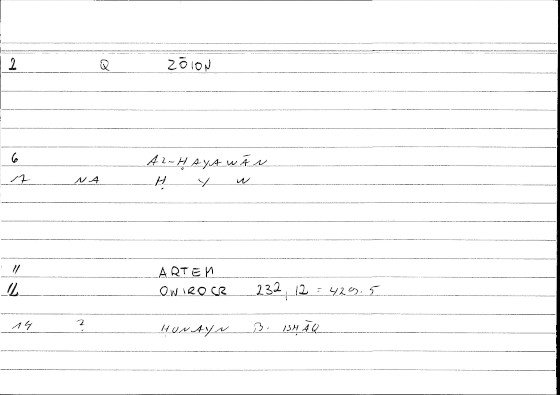 2 Q ZŌION
6 AL-ḤAYAWĀN
7 NA Ḥ Y W
11 ARTEM
12 ONIROCR 232, 12 = 429.5
14 ? ḤUNAYN B. ISḤĀQ